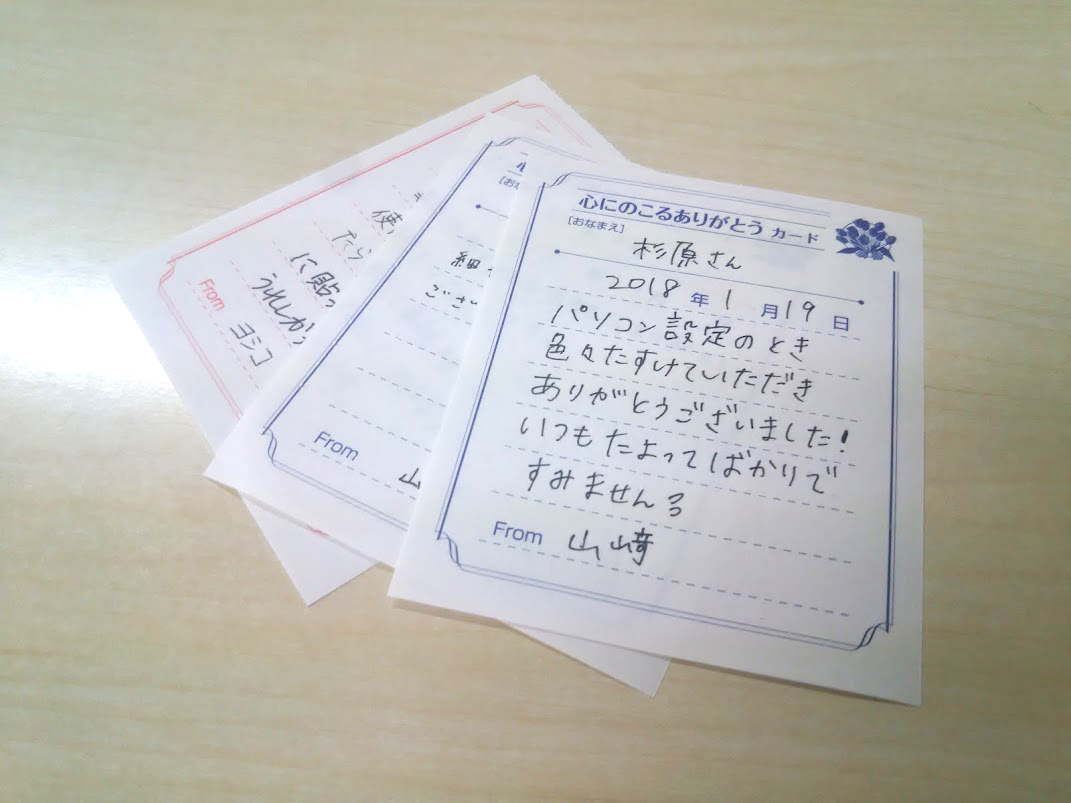 心にのこるありがとう カード
[おなまえ]
杉原さん
2018 年 1 月 19 日
パソコン設定のとき
色々たすけていただき
ありがとうございました!
いつもたよってばかりで
すみません
From 山﨑
心
[おな
細
ござ
From 山
使
たら
に貼っ
うれしか
From ヨシコ